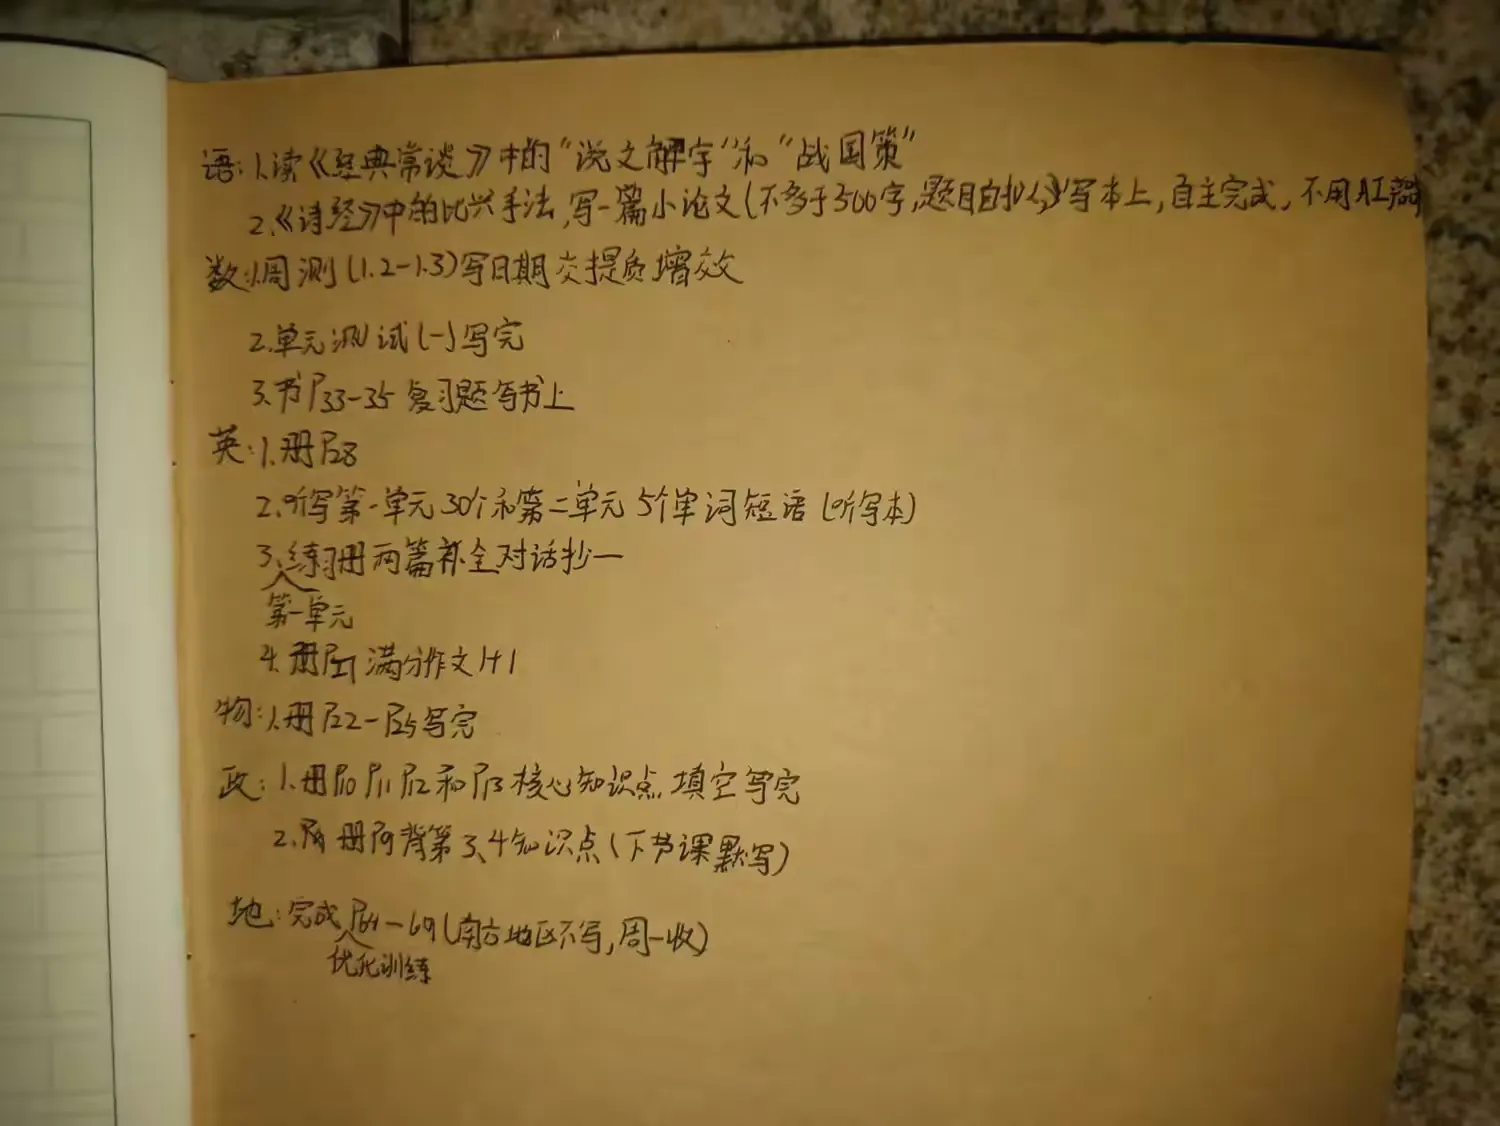 语:1.读《经典常谈》中的“说文解字”和“战国策”
2.《诗经》中的比兴手法,写一篇小论文(不多于500字,题目自拟)写本上,自主完成,不用AI
数:1.周测(1.2-1.3)写日期交提质增效
2.单元测试(一)写完
3.书P33-35复习题写书上
英:1.册P28
2.听写第一单元30个和第二单元5个单词短语(听写本)
3.练习册两篇补全对话抄一
第一单元
4.册P 满分作文1+1
物:1.册P22-P25写完
政:1.册P10 P11 P12和P13核心知识点填空写完
2.册P9背第3、4知识点(下节课默写)
地:完成P64-69(南方地区不写,周一收)
优化训练